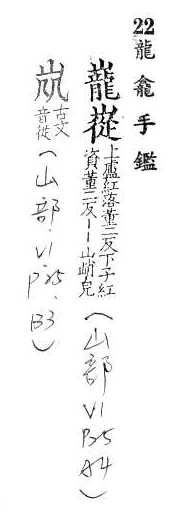 22 龍龕手鑑
巃嵸 上盧紅落董二反下子紅
資董二反丨丨山峭皃 (山部 V1 A4)
古文
音從 (山部 V1 B3)